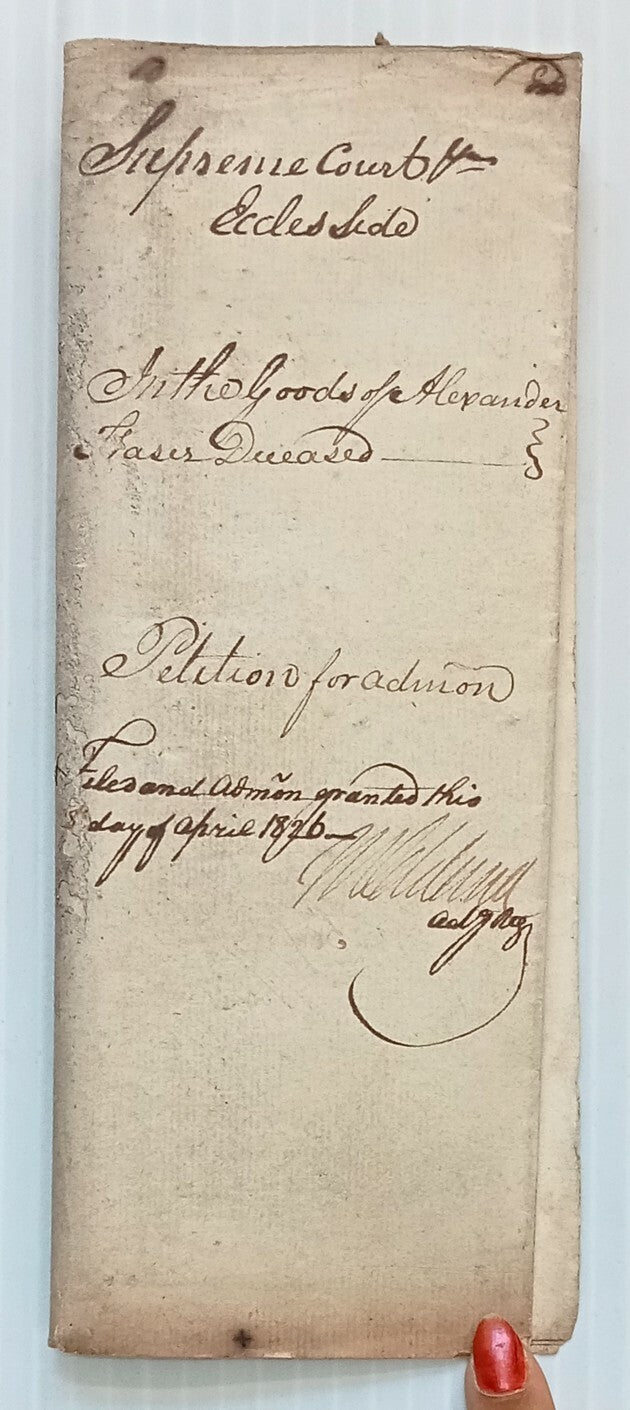 Supreme Court
Eccles Side
In the Goods of Alexander
Fraser Deceased
Petition for admõn
Filed and admõn granted this
day of April 1826